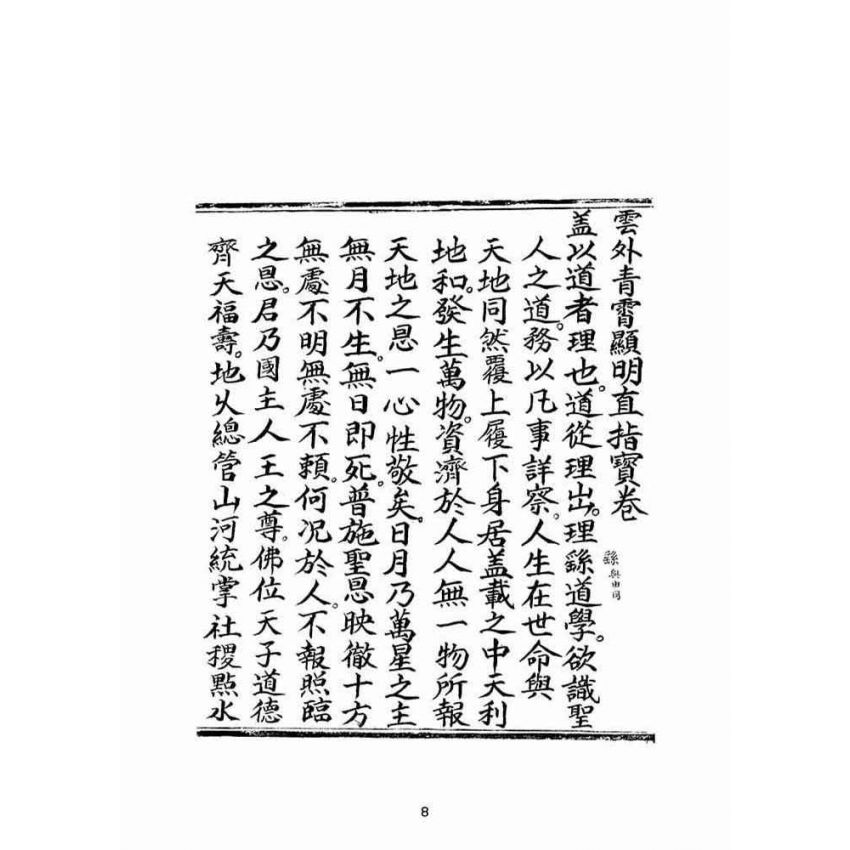 雲外青霄顯明直指寶卷
盖以道者理也。道從理出。理繇道學。欲識聖
繇與由同
人之道。務以凡事詳察。人生在世命與
天地同然覆上履下身居盖載之中天利
地和。發生萬物。資濟於人人無一物所報
天地之恩一心性敬矣。日月乃萬星之主
無月不生。無日即死。普施聖恩映徹十方
無處不明無處不賴。何况於人。不報照臨
之恩。君乃國主人王之尊。佛位天子道德
齊天福壽。地久總管山河統掌社稷點水
8